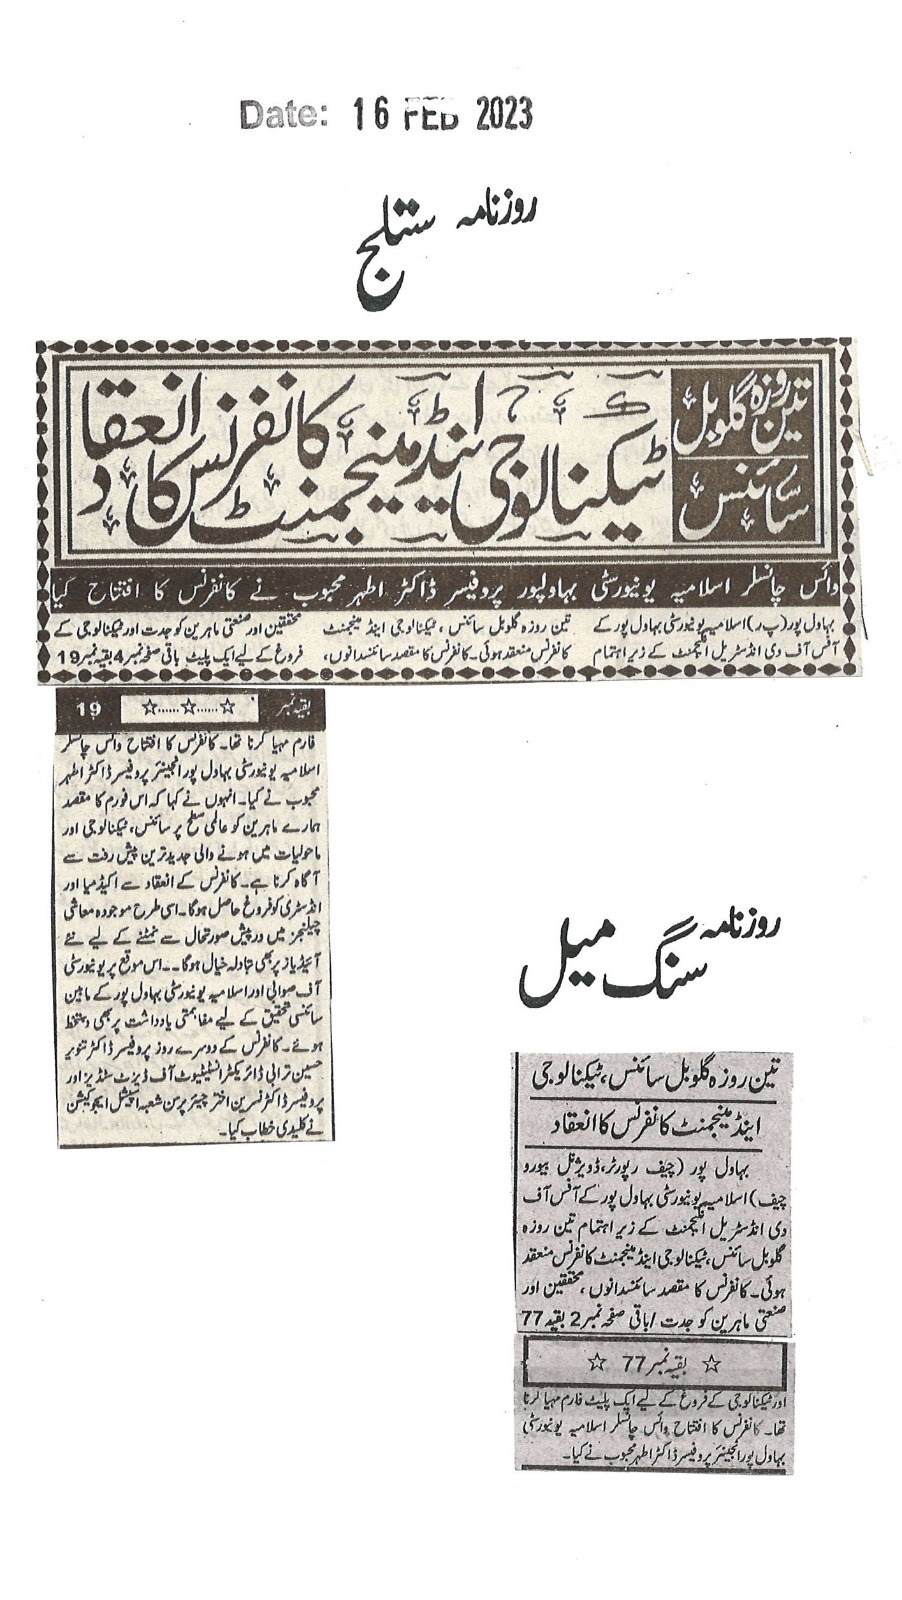 Date: 16 FEB 2023
روزنامہ ستلج
تین روزہ گلوبل
سائنس
ٹیکنالوجی اینڈ مینجمنٹ کانفرنس کا انعقاد
وائس چانسلر اسلامیہ یونیورسٹی بہاولپور پروفیسر ڈاکٹر اطہر محبوب نے کانفرنس کا افتتاح کیا
بہاول پور (پ ر) اسلامیہ یونیورسٹی بہاول پور کے
آفس آف دی انڈسٹریل لنکجمنٹ کے زیر اہتمام
تین روزہ گلوبل سائنس، ٹیکنالوجی اینڈ مینجمنٹ
کانفرنس منعقد ہوئی۔ کانفرنس کا مقصد سائنسدانوں،
محققین اور صنعتی ماہرین کو جدت اور ٹیکنالوجی کے
فروغ کے لیے ایک پلیٹ باقی صفحہ نمبر 4 بقیہ نمبر 19
بقیہ نمبر ☆......☆......☆ 19
فارم مہیا کرنا تھا۔ کانفرنس کا افتتاح وائس چانسلر
اسلامیہ یونیورسٹی بہاول پور انجینئر پروفیسر ڈاکٹر اطہر
محبوب نے کیا۔ انہوں نے کہا کہ اس فورم کا مقصد
ہمارے ماہرین کو عالمی سطح پر سائنس، ٹیکنالوجی اور
ماحولیات میں ہونے والی جدید ترین پیش رفت سے
آگاہ کرنا ہے۔ کانفرنس کے انعقاد سے اکیڈمیا اور
انڈسٹری کو فروغ حاصل ہوگا۔ اسی طرح موجودہ معاشی
چیلنجز میں درپیش صورتحال سے نمٹنے کے لیے نئے
آئیڈیاز پر بھی تبادلہ خیال ہوگا۔۔ اس موقع پر یونیورسٹی
آف صوابی اور اسلامیہ یونیورسٹی بہاول پور کے مابین
سائنسی تحقیق کے لیے مفاہمتی یادداشت پر بھی دستخط
ہوئے۔ کانفرنس کے دوسرے روز پروفیسر ڈاکٹر تنویر
حسین ترابی ڈائریکٹر انسٹیٹیوٹ آف ڈیزرٹ سٹڈیز اور
پروفیسر ڈاکٹر نسرین اختر چیئر پرسن شعبہ اسپیشل ایجوکیشن
نے کلیدی خطاب کیا۔
روزنامہ سنگ میل
تین روزہ گلوبل سائنس، ٹیکنالوجی
اینڈ مینجمنٹ کانفرنس کا انعقاد
بہاول پور (چیف رپورٹر، ڈویژنل بیورو
چیف) اسلامیہ یونیورسٹی بہاول پور کے آفس آف
دی انڈسٹریل لنکجمنٹ کے زیر اہتمام تین روزہ
گلوبل سائنس، ٹیکنالوجی اینڈ مینجمنٹ کانفرنس منعقد
ہوئی۔ کانفرنس کا مقصد سائنسدانوں، محققین اور
صنعتی ماہرین کو جدت (باقی صفحہ نمبر 2 بقیہ 77
☆ بقیہ نمبر 77 ☆
اور ٹیکنالوجی کے فروغ کے لیے ایک پلیٹ فارم مہیا کرنا
تھا۔ کانفرنس کا افتتاح وائس چانسلر اسلامیہ یونیورسٹی
بہاول پور انجینئر پروفیسر ڈاکٹر اطہر محبوب نے کیا۔